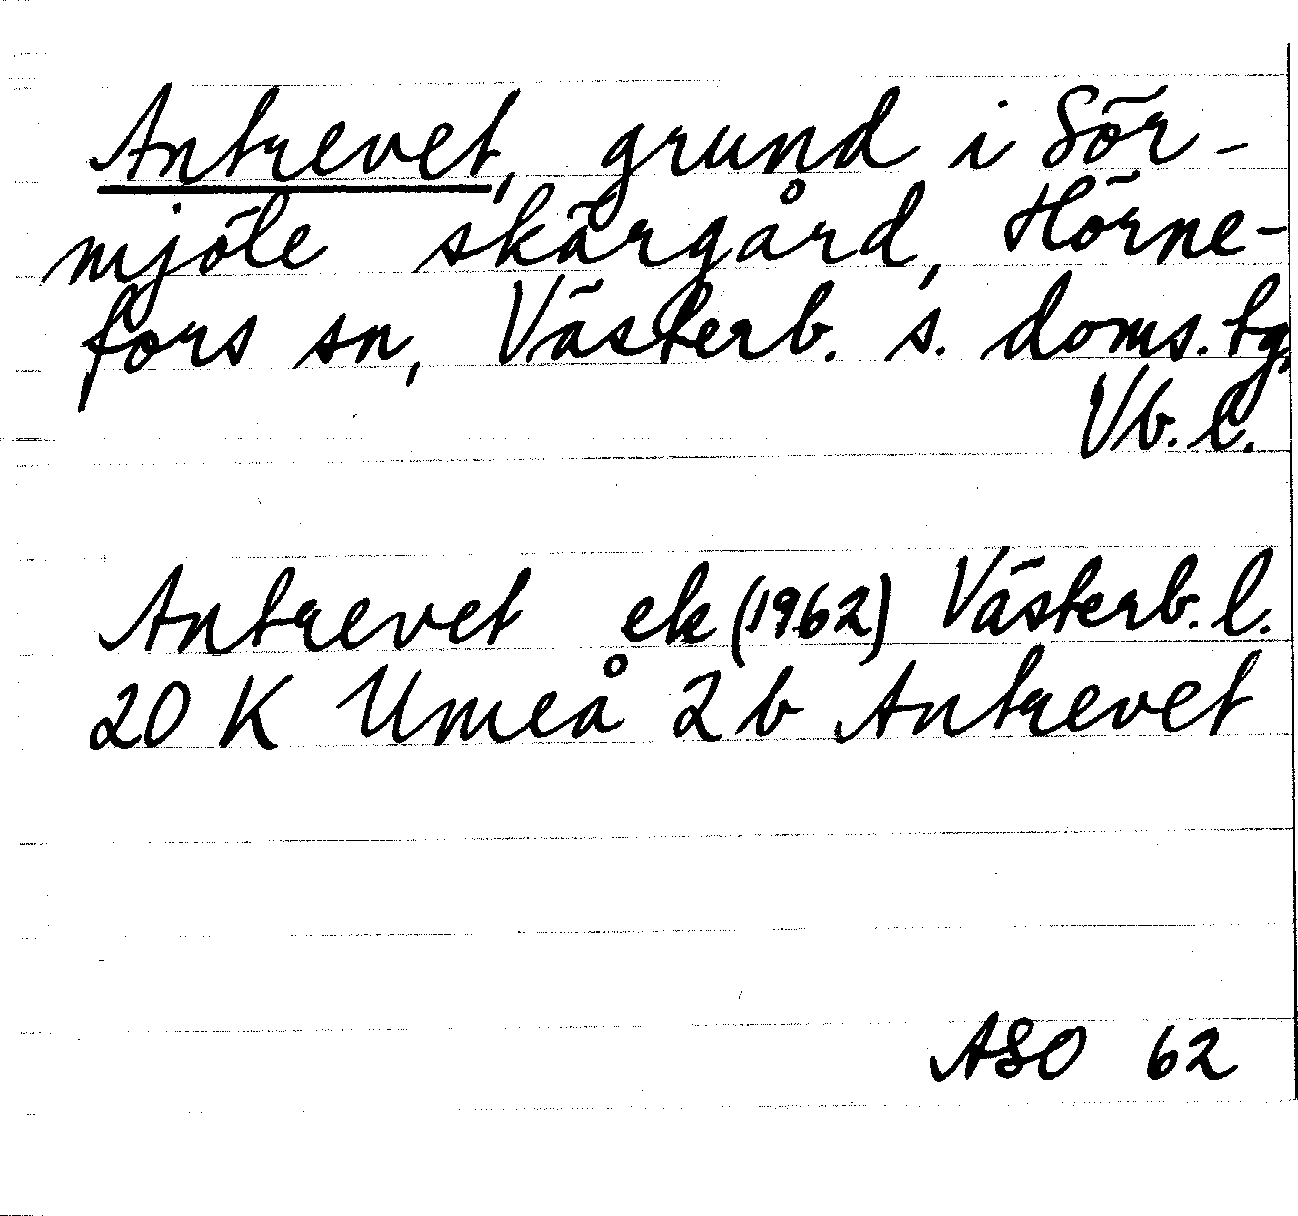 Antrevet, grund i Sör-
mjöle skärgård, Hörne-
fors sn, Västerb. s. doms. tg,
Vb. l.
Antrevet ek (1962) Västerb. l.
20 K Umeå 2 b Antrevet
ASO 62